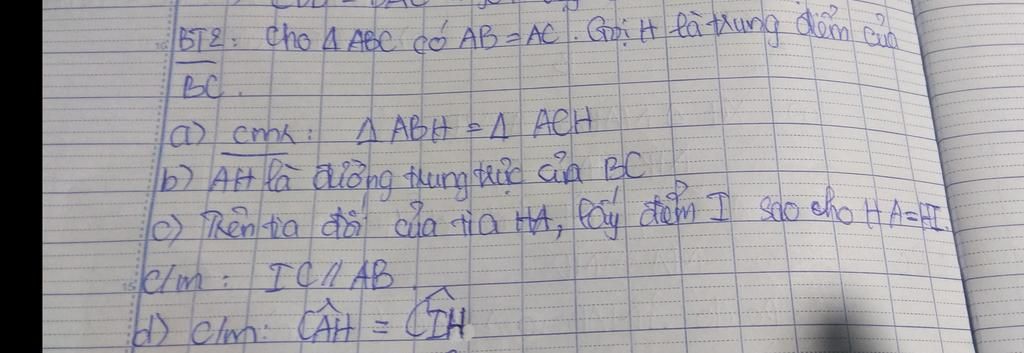 BT2: Cho Δ ABC có AB = AC. Gọi H là trung điểm của
BC.
a) cmr: Δ ABH = Δ ACH
b) AH là đường trung trực của BC
c) Trên tia đối của tia HA, lấy điểm I sao cho HA = HI.
c/m: IC // AB
d) c/m: CÂH = CÎH